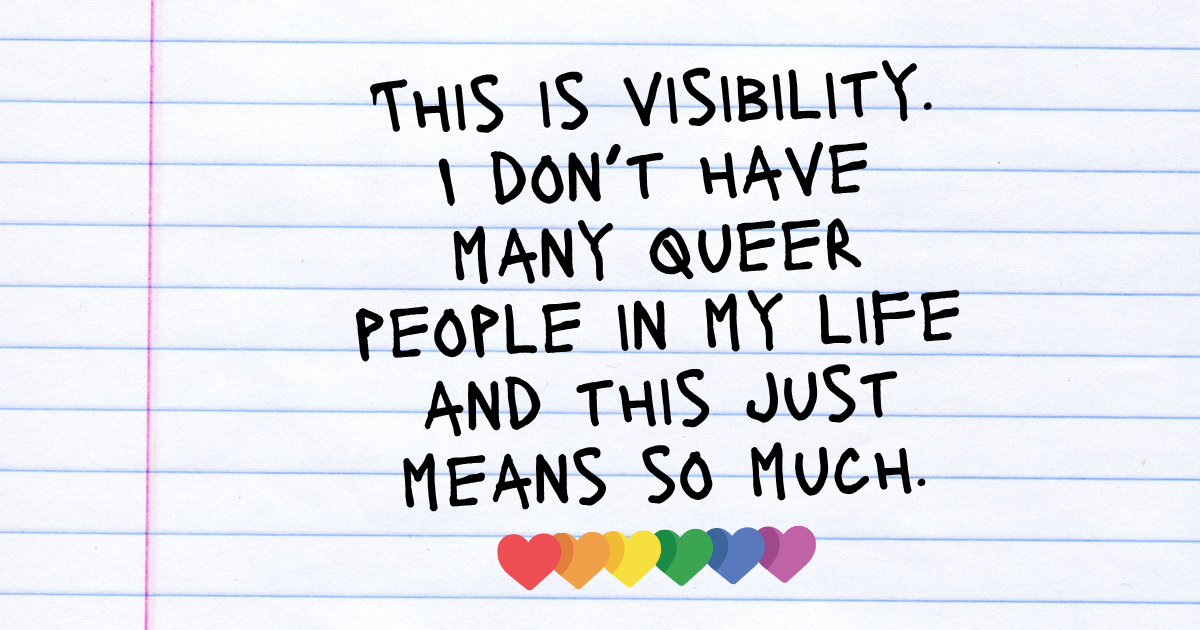 THIS IS VISIBILITY.
I DON'T HAVE
MANY QUEER
PEOPLE IN MY LIFE
AND THIS JUST
MEANS SO MUCH.